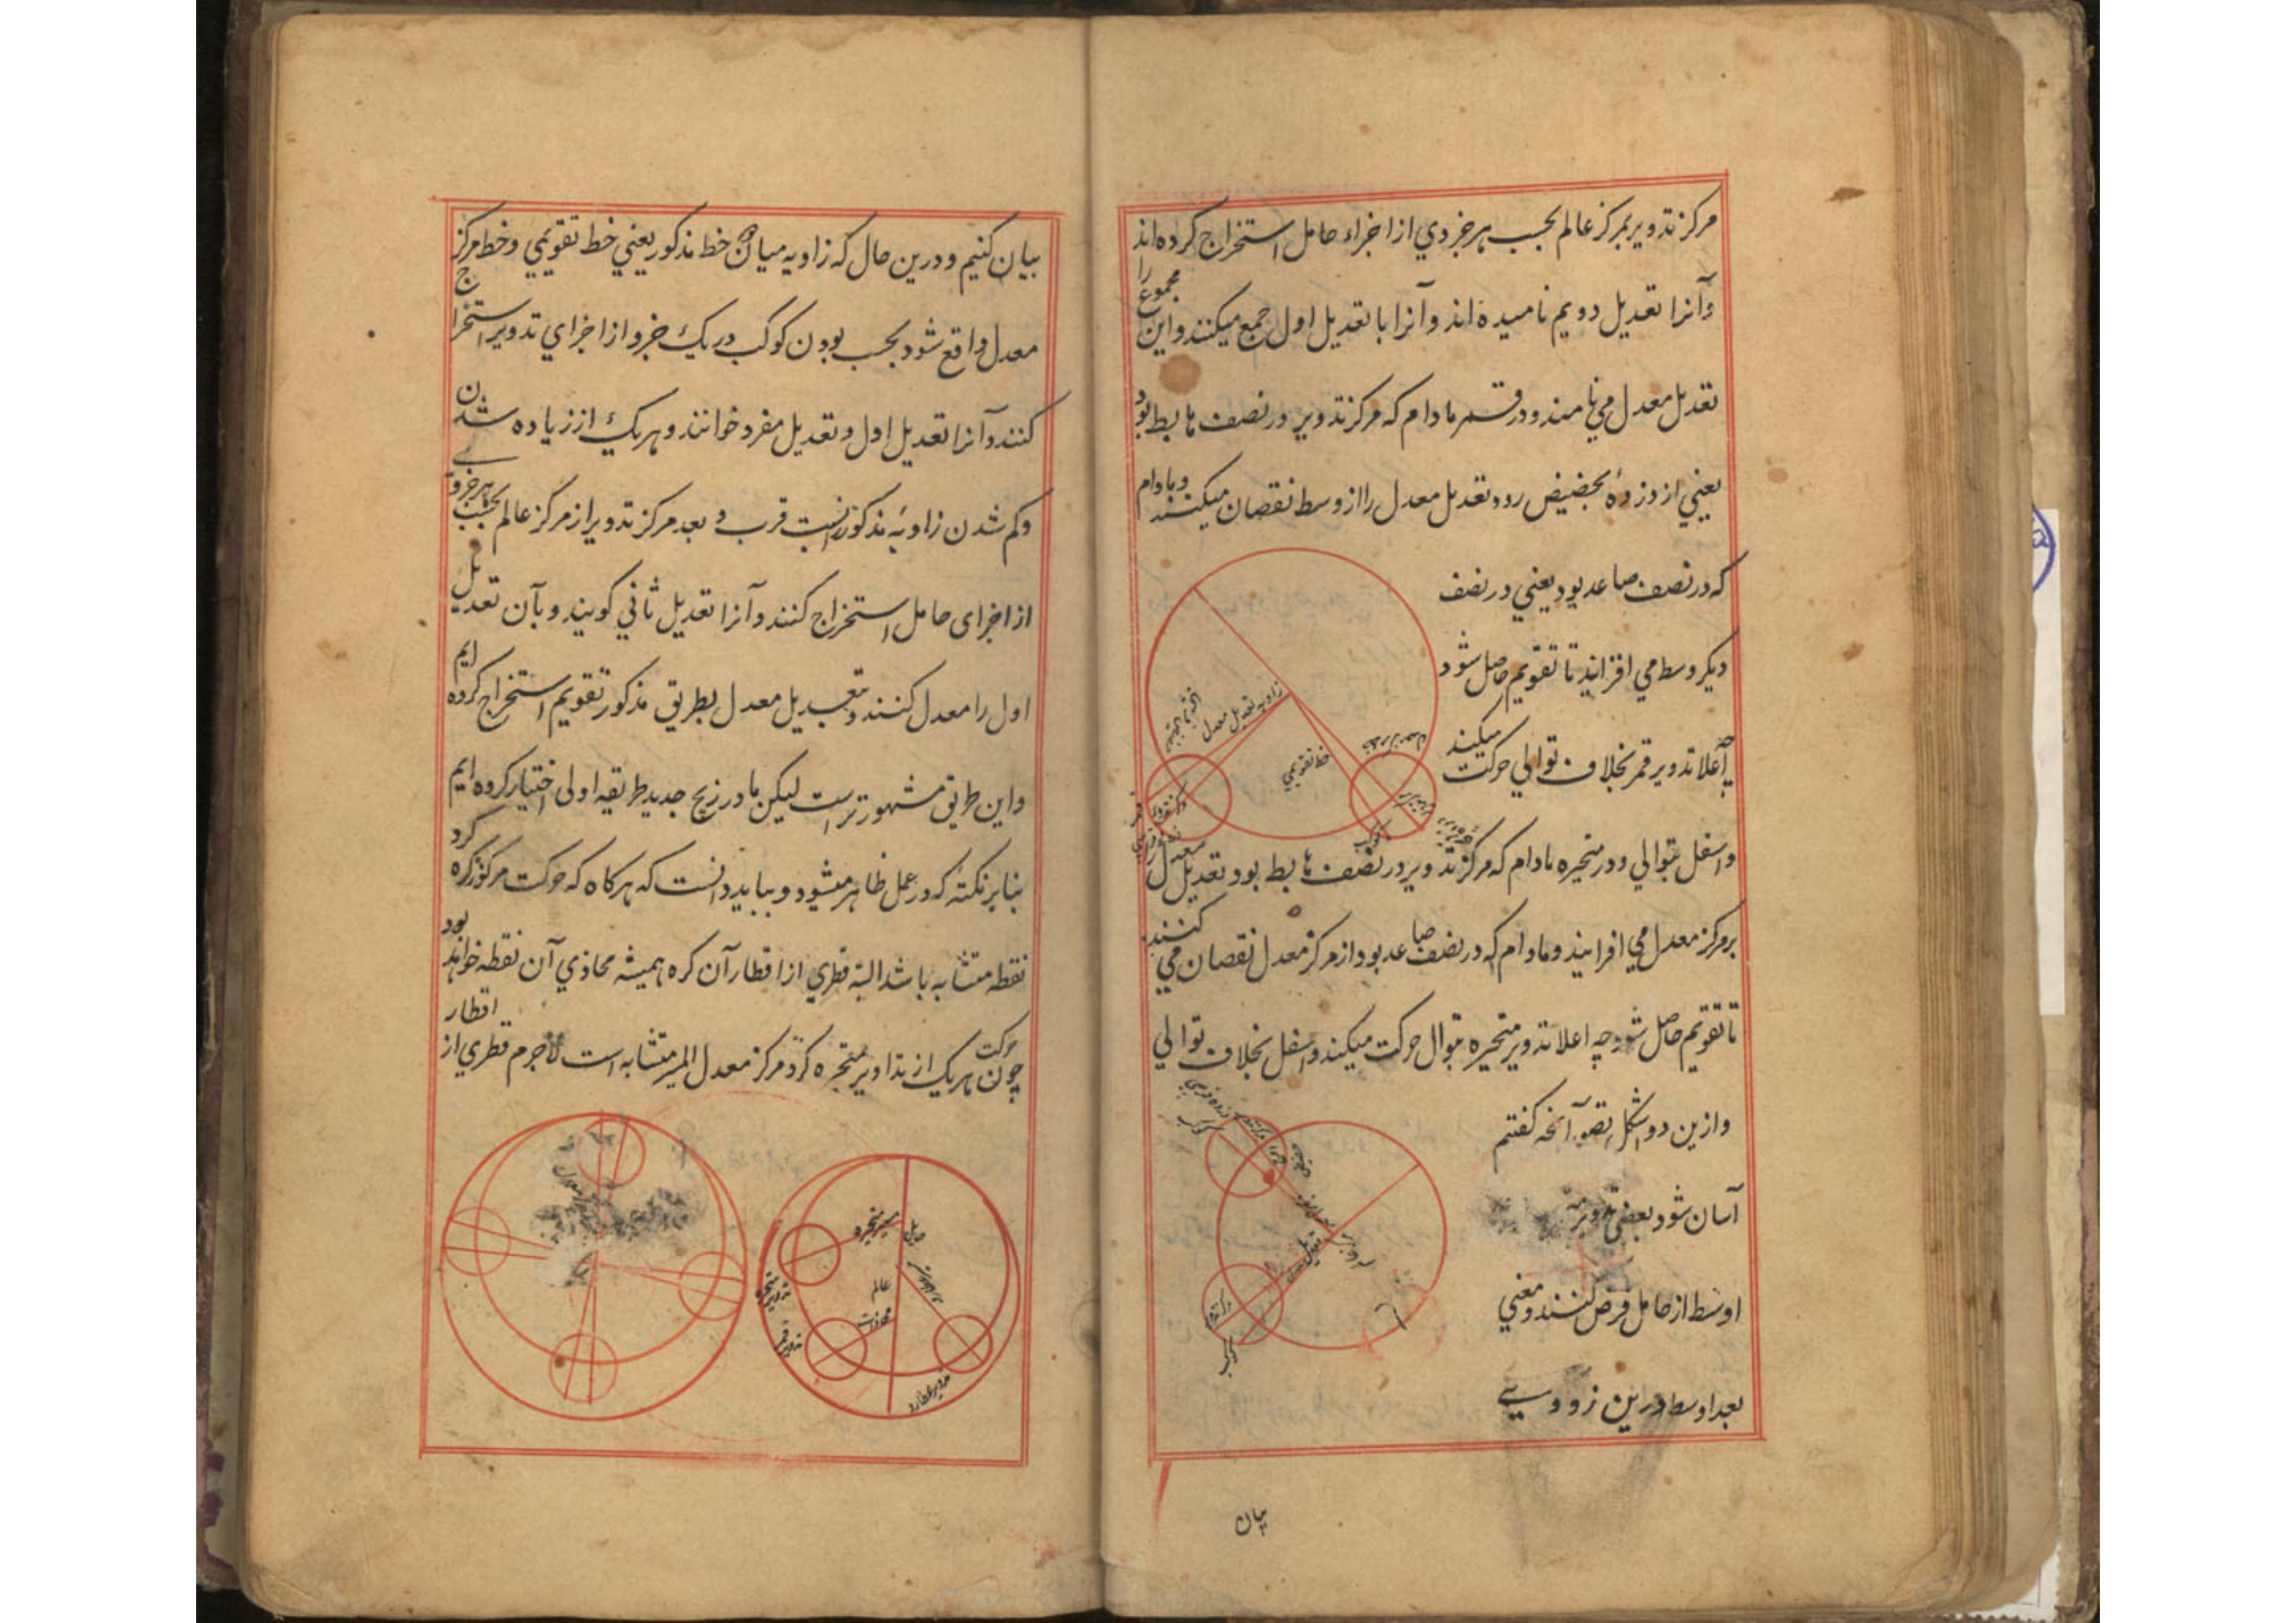 مرکز تدویر بمرکز عالم بحسب هر جزوي از اجزاء حامل استخراج کرده اند
وآنرا تعدیل دویم نامیده اند وآنرا با تعدیل اول جمع میکنند و این مجموع را
تعدیل معدل می نامند و در قمر مادام که مرکز تدویر در نصف هابط بود
یعني از ذروه بحضیض رود تعدیل معدل را از وسط نقصان میکنند و مادام
که در نصف صاعد بود یعني در نصف
دیکر وسط مي افزایند تا تقویم حاصل شود
چه اعلا تدویر قمر بخلاف توالي حرکت میکند
زاویه تعدیل معدل
خط تقویمي
و اسفل بتوالي و در متحیره مادام که مرکز تدویر در نصف هابط بود تعدیل معدل
بر مرکز معدل مي افزایند و مادام که در نصف صاعد بود از مرکز معدل نقصان مي کنند
تا تقویم حاصل شود چه اعلا تدویر متحیره بتوال حرکت میکند و اسفل بخلاف توالي
وازین دو شکل تصور آنچه کفتم
آسان شود بعضي
اوسط از حامل فرض کنند و معني
بعد اوسط درین زودي
کوکب
بیان
بیان کنیم و درین حال که زاویه میان دو خط مذکور یعني خط تقویمي و خط مرکز
معدل واقع شود بحسب بودن کوکب در یک جزو از اجزاي تدویر استخراج
کنند وآنرا تعدیل اول و تعدیل مفرد خوانند و هر یک از زیاده شدن
و کم شدن زاویه مذکور نسبت قرب و بعد مرکز تدویر از مرکز عالم بحسب هر جزوی
از اجزای حامل استخراج کنند وآنرا تعدیل ثاني کویند و بآن تعدیل
اول را معدل کنند و بتعدیل معدل بطریق مذکور تقویم استخراج کرده ایم
واین طریق مشهورتر است لیکن ما در زیج جدید طریقه اولی اختیار کرده ایم
بنا بر نکته که در عمل ظاهر میشود و بباید دانست که هر کاه که حرکت مرکز کره کرد
نقطه متشابه باشد البته قطري از اقطار آن کره همیشه محاذي آن نقطه خواهد بود
چون حرکت هر یک از تداویر متحیره کرد مرکز معدل المسیر متشابه است لاجرم قطري از اقطار
مسیر متحیره
حامل
عالم
محاذات
تدویر متحیره
تدویر قمر
تدویر عطارد